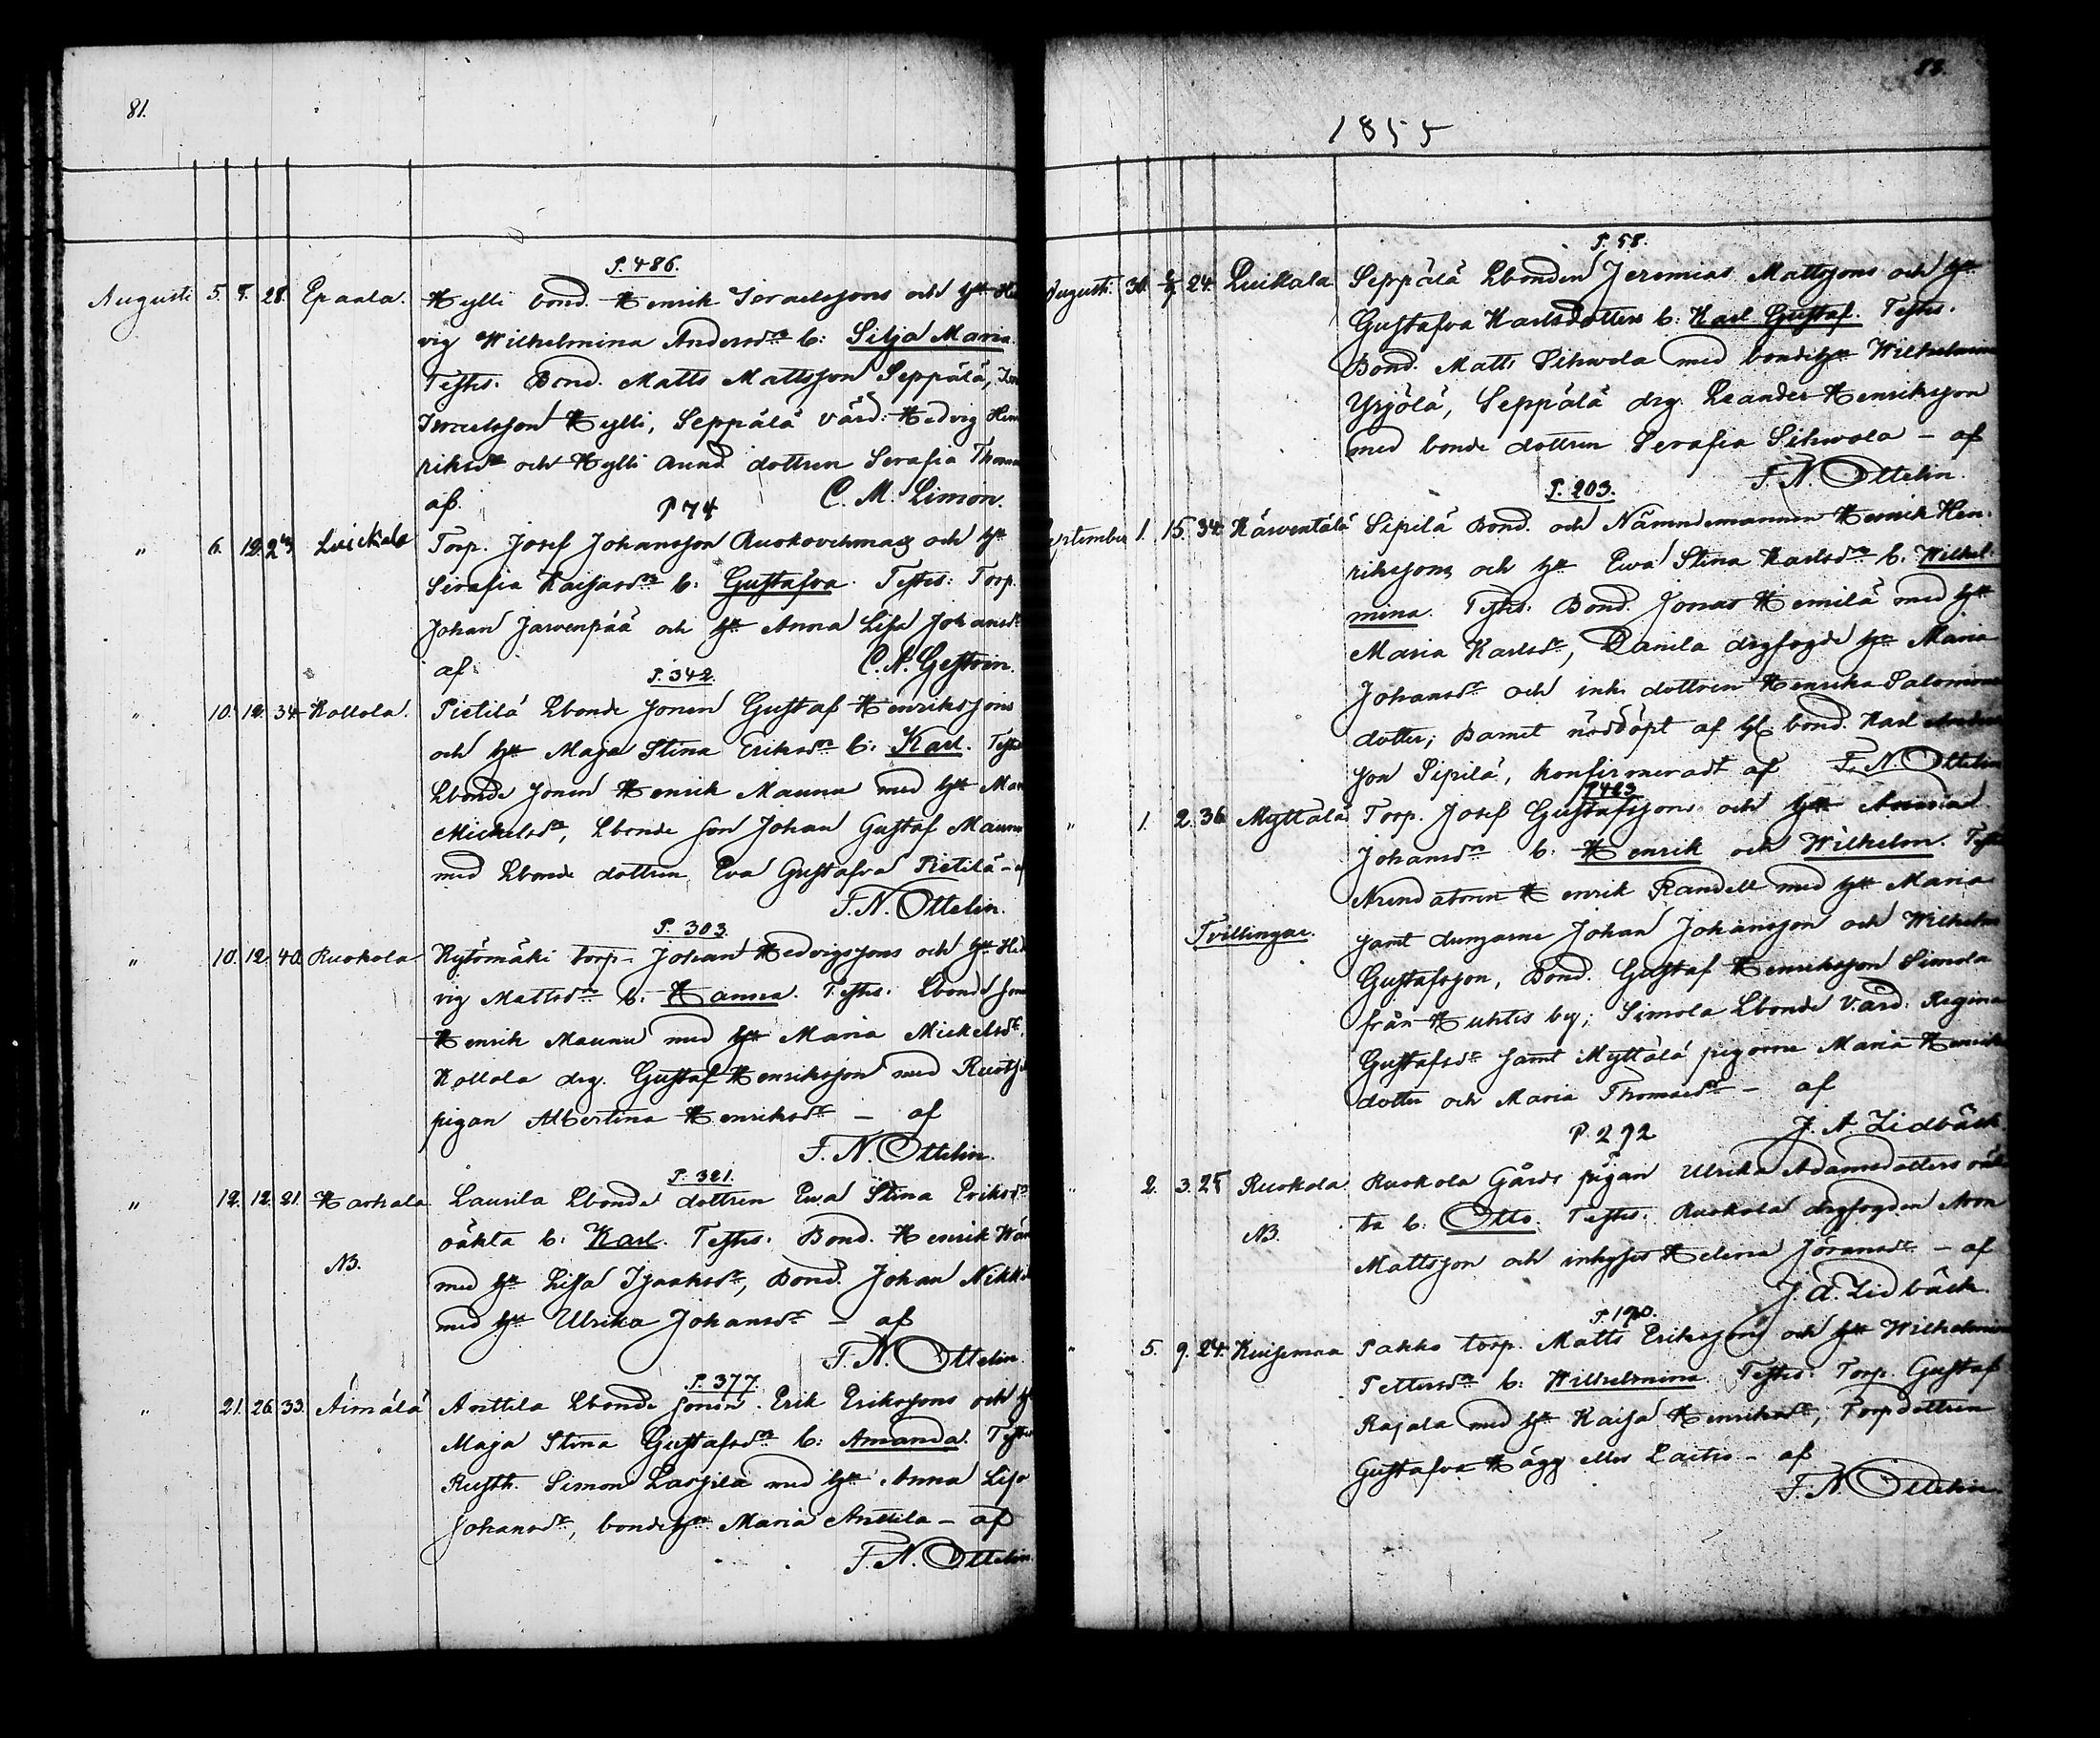 81.
P. 486.
Augusti 5. 8. 28. Epaala. Hylli bond. Henrik Israelssons och hu Hed
vig Wilhelmina Andersdr b: Silja Maria.
Testes. Bond. Matts Mattsson Seppälä,
Israelsson Hylli, Seppälä värd: Hedvig Hen
riksdr och Hylli dottren Serafia
af. C. M. Limón.
P 74
" 6. 12. Luikala Torp. Josef Johansson och hu
Serafia Kaisasdr b: Gustafva. Testes: Torp.
Johan Jarvenpää och hu Anna Lisa Johansdr
af C. A. Gestrin.
P. 342.
" 10. 12. 34. Kollola. Pietilä Lbonde sonen Gustaf Henrikssons
och hu Maja Stina Eriksdr b: Karl. Testes
Lbonde sonen Henrik Maunu med hu Mar
Mickelsdr, Lbonde son Johan Gustaf Maunu
med Lbonde dottren Eva Gustafva Pietilä - af
F. N. Ottelin.
P. 303.
" 10. 12. 40. Ruokola Kytömäki torp. Johan Hedvigssons och hu Hed
vig Mattsdr b: Hanna. Testes. Lbonde son
Henrik Maunu med hu Maria Mickelsdr.
Kollola drg. Gustaf Henriksson med
pigan Albertina Henriksdr — af
F. N. Ottelin.
P. 321.
" 12. 12. 21. Harhala Laurila Lbonde dottren Eva Stina Eriksdr
oäkta b: Karl. Testes. Bond. Henrik
NB.
med hu Lisa Isaaksdr, Bond. Johan Nikkilä
med hu Ulrika Johansdr — af
F. N. Ottelin.
P. 377.
" 21. 26. 33. Äimälä Anttila Lbonde sonen Erik Erikssons och hu
Maja Stina Gustafsdr b: Amanda. Testes
Rusth. Simon Lassila med hu Anna Lisa
Johansdr, bondehu Maria Anttila — af
F. N. Ottelin.
82.
1855
P. 58.
Augusti. 31. 24. Luikala Seppälä Lbonden Jeremias Mattssons och hu
Gustafva Karlsdotters b: Karl Gustaf. Testes.
Bond. Matts Sihvola med bondehu Wilhelmina
Yrjölä, Seppälä drg. Leander Henriksson
med bonde dottren Serafia Sihvola — af
F. N. Ottelin.
P. 203.
September 1. 15. 34. Kärventälä Sipilä Bond. och Nämndemannen Henrik Hen-
rikssons och hu Eva Stina Karlsdr b: Wilhel-
mina. Testes. Bond. Jonas Hemilä med hu
Maria Karlsdr, Danila drgfogde hu Maria
Johansdr och inh. dottren Henrika Salomons
dotter; Barnet nöddöpt af bond. Karl Anders
son Sipilä, konfirmeradt af F. N. Ottelin
P 483
" 1. 2. 36. Myttälä Torp. Josef Gustafssons och hu
Johansdr b: Henrik och Wilhelm. Testes
Arendatoren Henrik Randell med hu Maria
Tvillingar.
samt drengarne Johan Johansson och Wilhelm
Gustafsson, Bond. Gustaf Henriksson Simola
från Huhtis by; Simola Lbonde värd: Regina
Gustafsdr samt Myttälä pigorne Maria Henriks
dotter och Maria Thomasdr — af
J. A. Lidbäck.
P. 292
" 2. 3. 25 Ruokola. Ruokola Gårds pigan Ulrika Adamsdotters oäk
NB.
ta b: Otto. Testes. Ruokola drgfogden Aron
Mattsson och inhyses Helena Göransdr — af
J. A. Lidbäck.
P. 190.
" 5. 9. 24. Kuisemaa Pakka torp. Matts Erikssons och hu Wilhelmina
Pettersdr b: Wilhelmina. Testes: Torp. Gustaf
Rajala med hu Kaisa Henriksdr, Torpdottren
Gustafva Hägg eller Laitis — af
F. N. Ottelin.